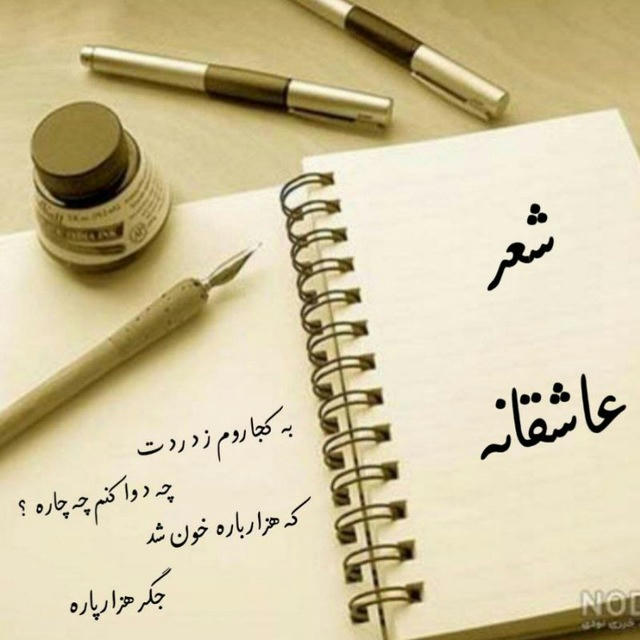 شعر
عاشقانه
به کجا روم ز دردت
چه دوا کنم چه چاره ؟
که هزار باره خون شد
جگر هزار پاره